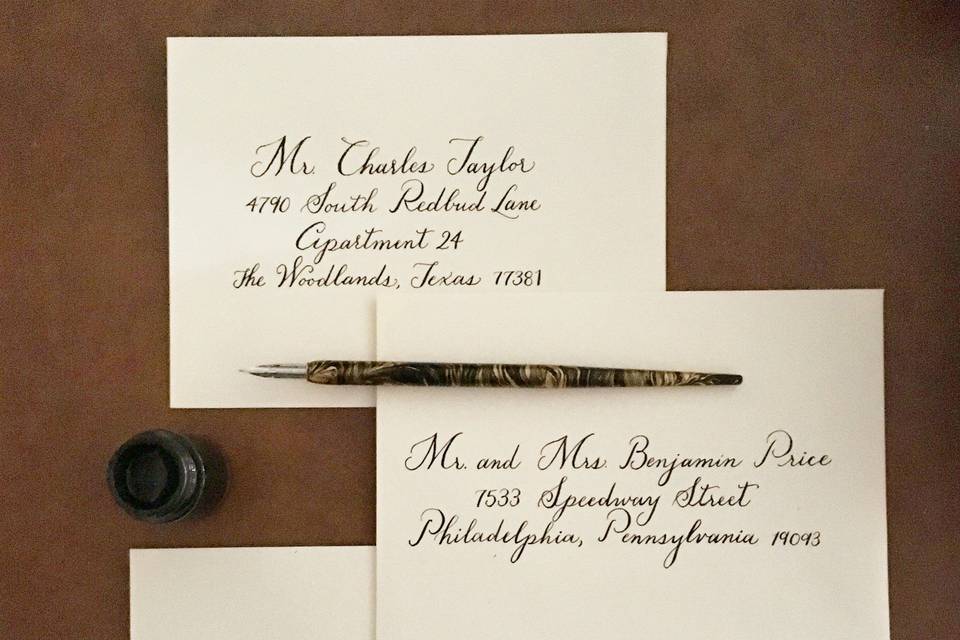 Mr. Charles Taylor
4790 South Redbud Lane
Apartment 24
The Woodlands, Texas 77381
Mr. and Mrs. Benjamin Price
7533 Speedway Street
Philadelphia, Pennsylvania 19093